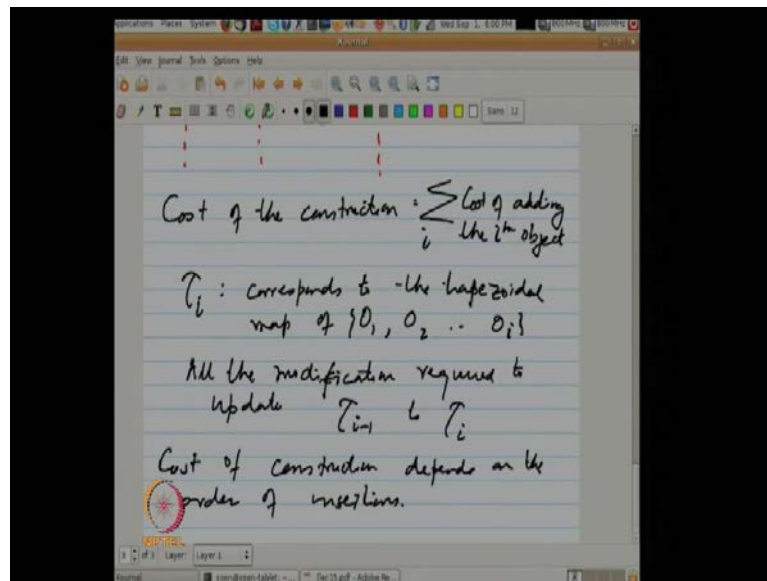 Applications Places System Wed Sep 1, 6:00 PM 800 MHz 800 MHz
Xournal
Edit View Journal Tools Options Help
Sans 12
Cost of the construction : Σ Cost of adding
i the ith object
T_i : corresponds to the trapezoidal
map of {O_1, O_2 .. O_i}
All the modification required to
update T_{i-1} to T_i
Cost of construction depends on the
order of insertions.
NPTEL
3 of 3 Layer: Layer 1
Xournal ssen@ssen-tablet: ~ Dec15.pdf - Adobe Re...